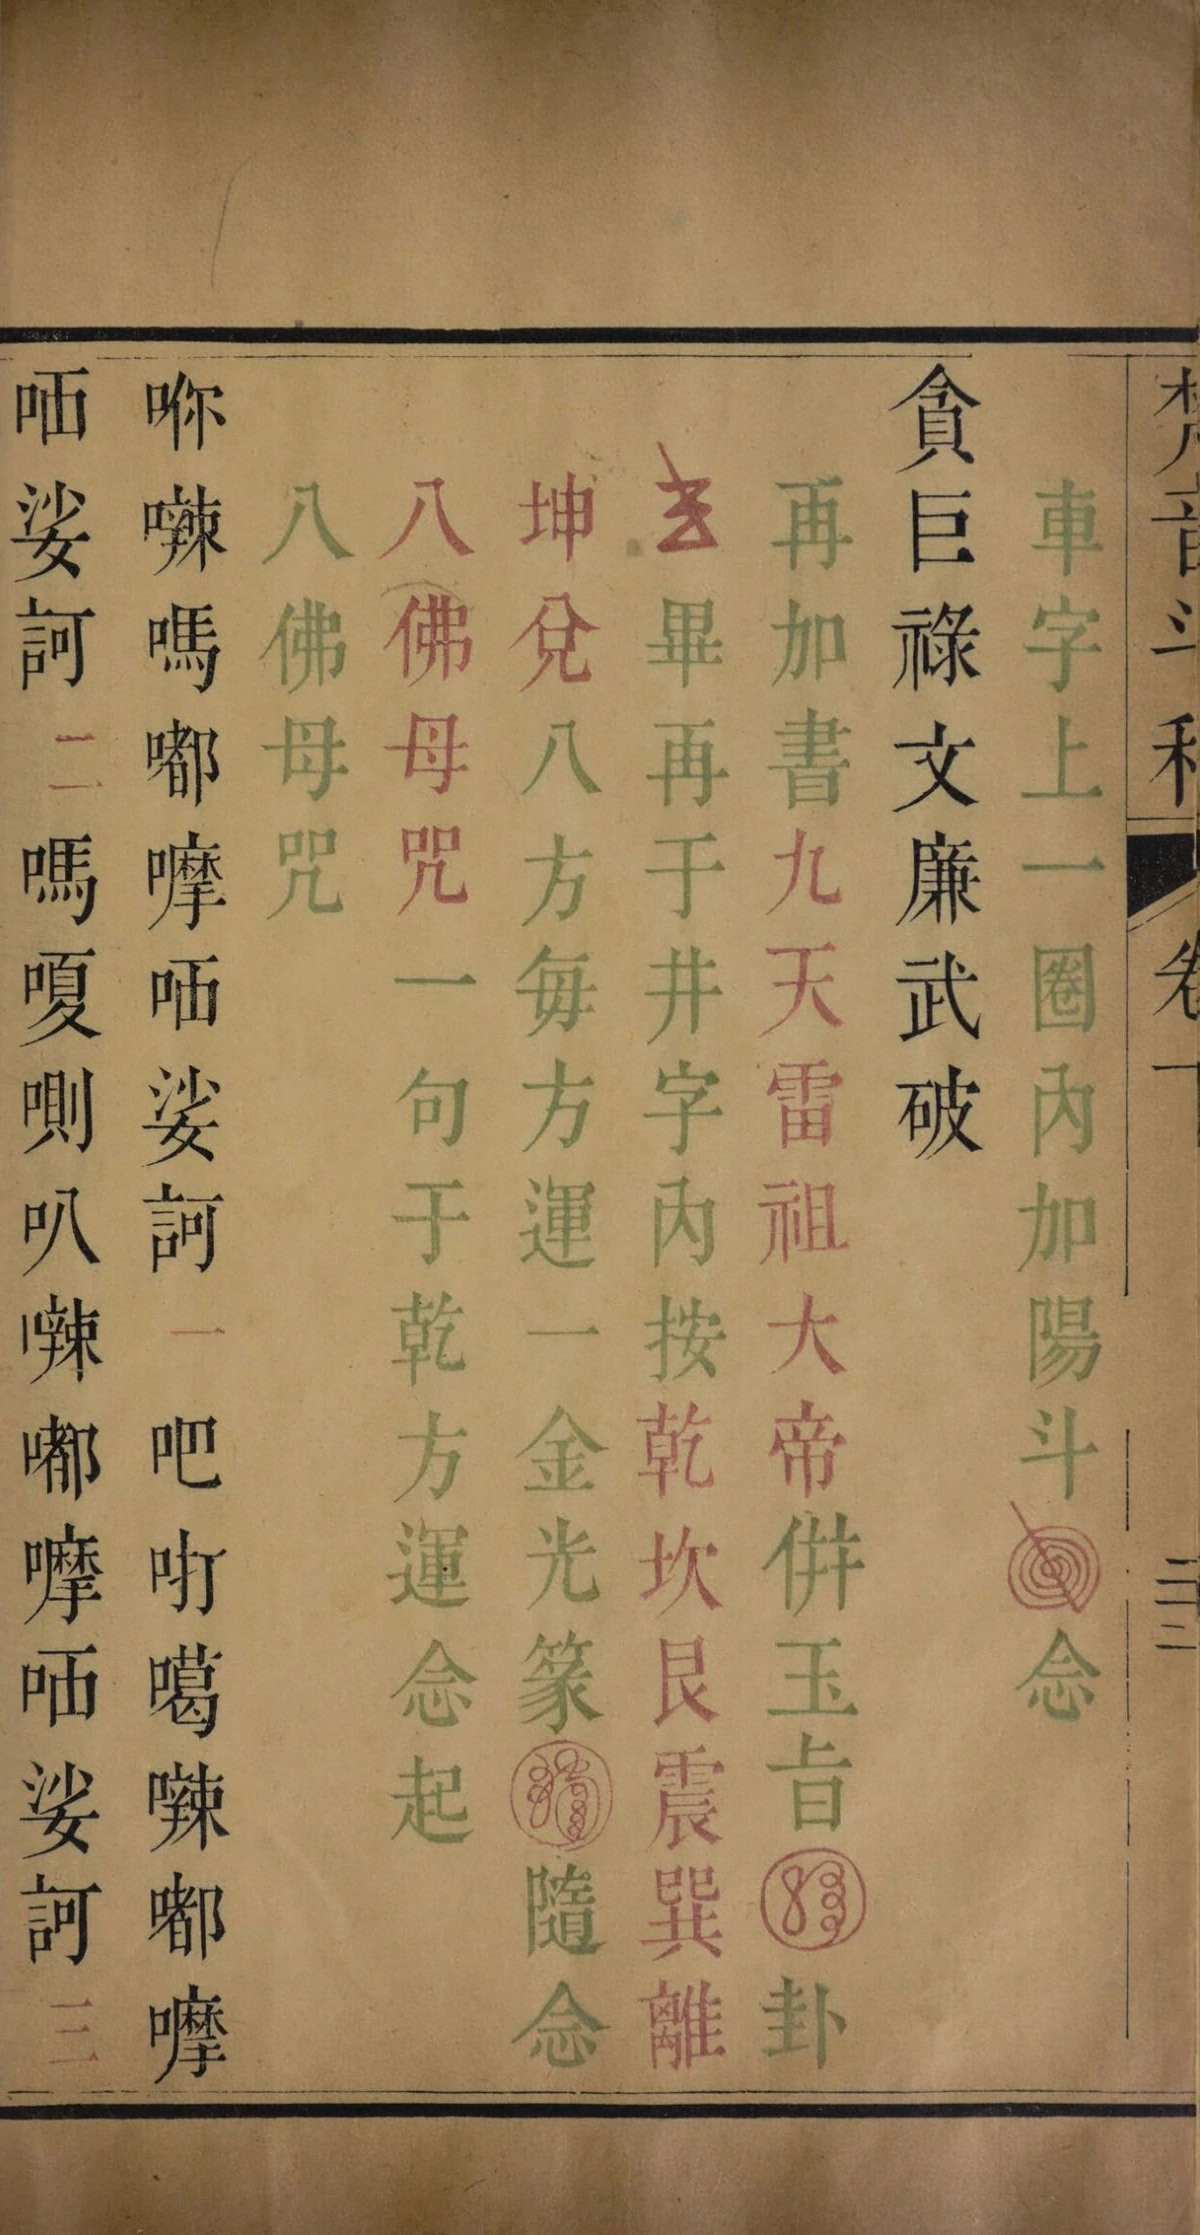 梵音斗科 卷下 二十二
車字上一圈內加陽斗念
貪巨祿文廉武破
再加書九天雷祖大帝併玉旨卦
畢再于井字內按乾坎艮震巽離
坤兌八方每方運一金光篆隨念
八佛母咒一句于乾方運念起
八佛母咒
㖠㗚嗎嘟嚤哂娑訶一吧咑噶㗚嘟嚤
哂娑訶二嗎嗄㘉叭㗚嘟嚤哂娑訶三